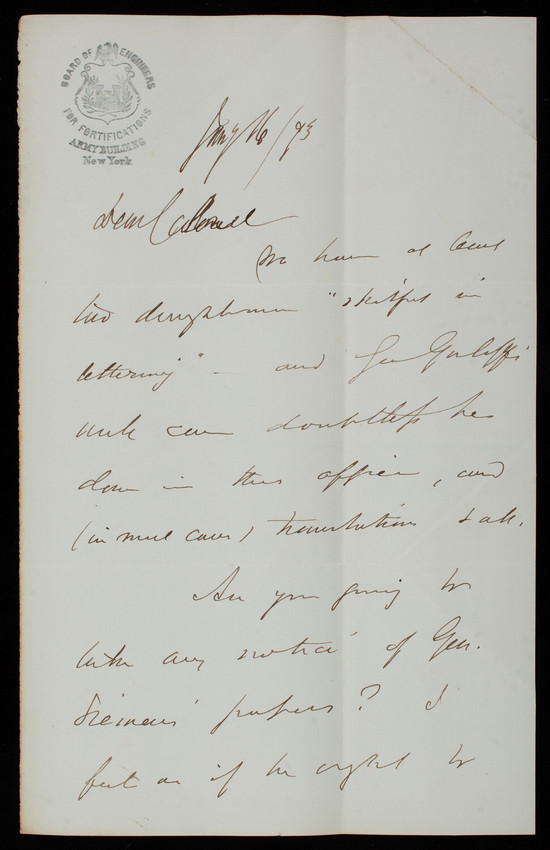 BOARD OF ENGINEERS
FOR FORTIFICATIONS
ARMY BUILDING
New York
Jany 16/73
Dear Colonel
We have at least
two draughtsmen "skilful in
lettering" – and Gen
work can doubtless be
done in this office, and
(in most cases) translations & all.
Are you going to
take any notice of Gen.
papers? I
feel as if he ought to